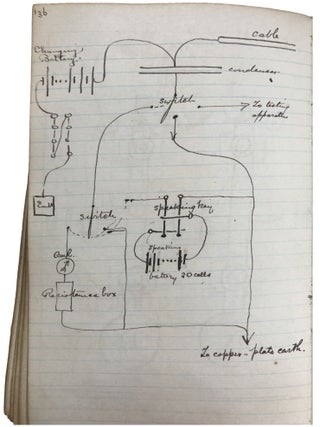 136
cable
Charging
Battery
condenser
switch
To testing
apparatus
switch
speaking key
speaking
battery 20 cells
Resistance box
To copper-plate earth.